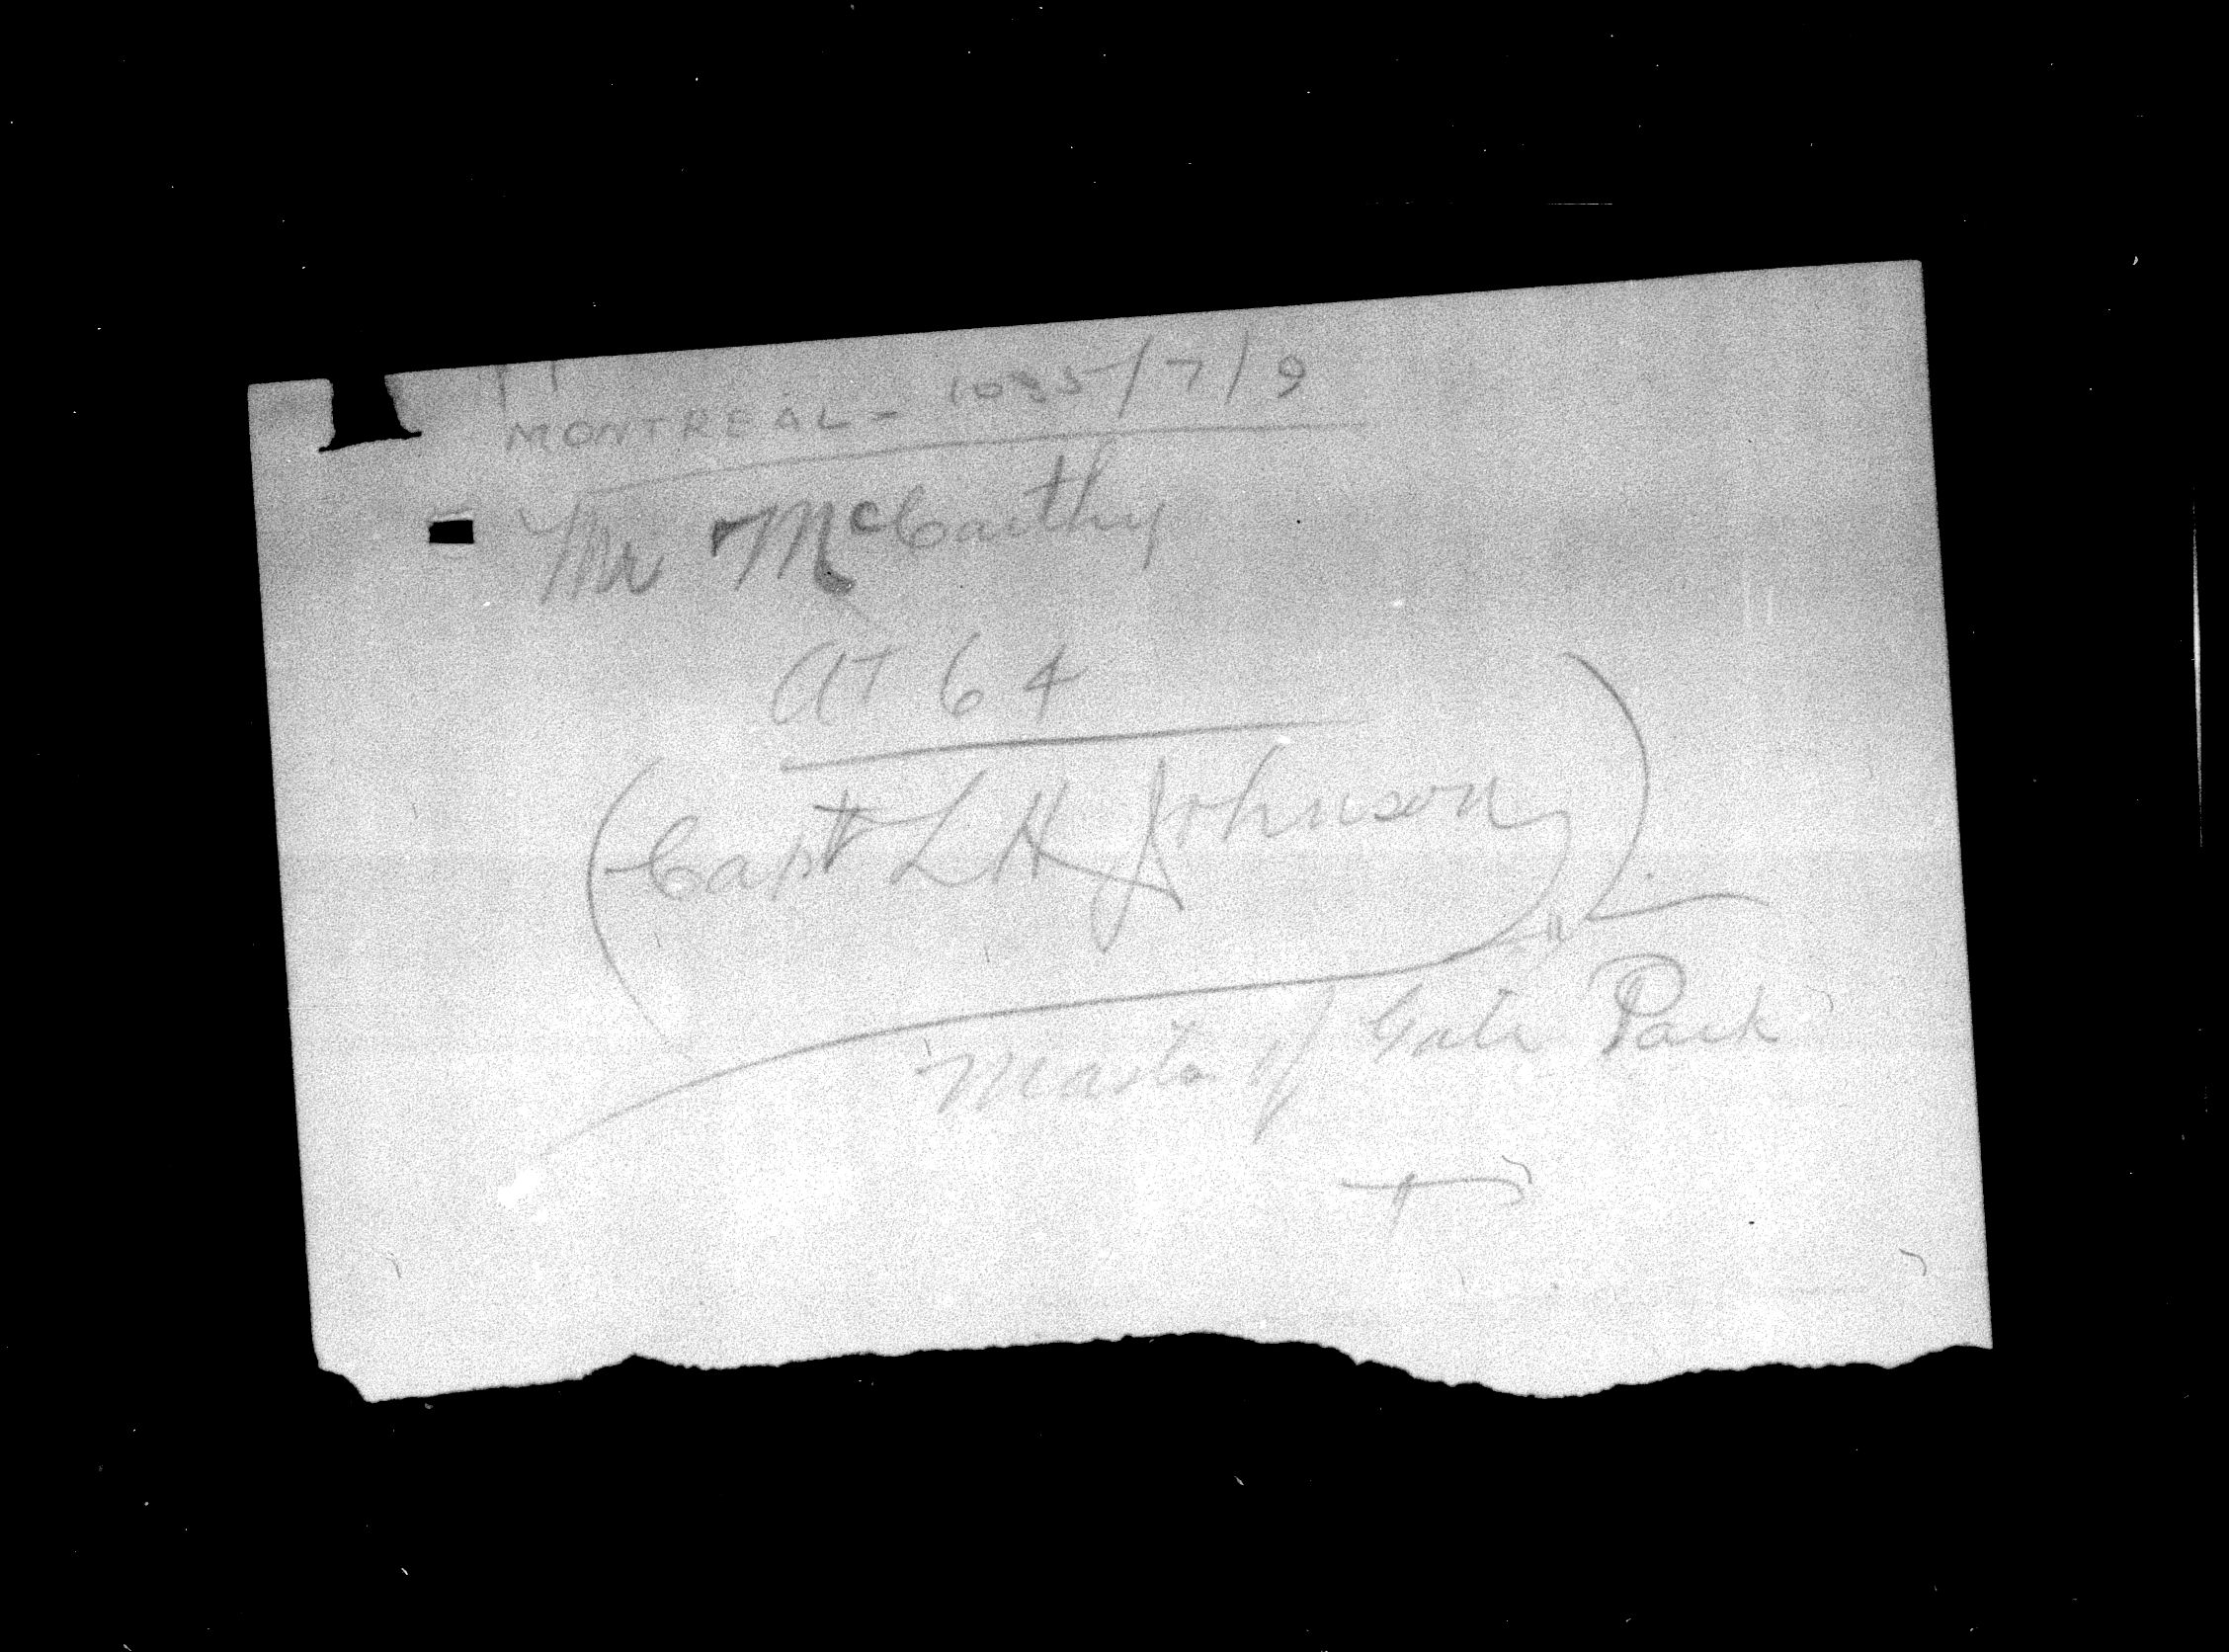 MONTREAL - 1035/7/9
Mr McCarthy
AT 64
(Capt L H Johnson)
Master of Gate Park